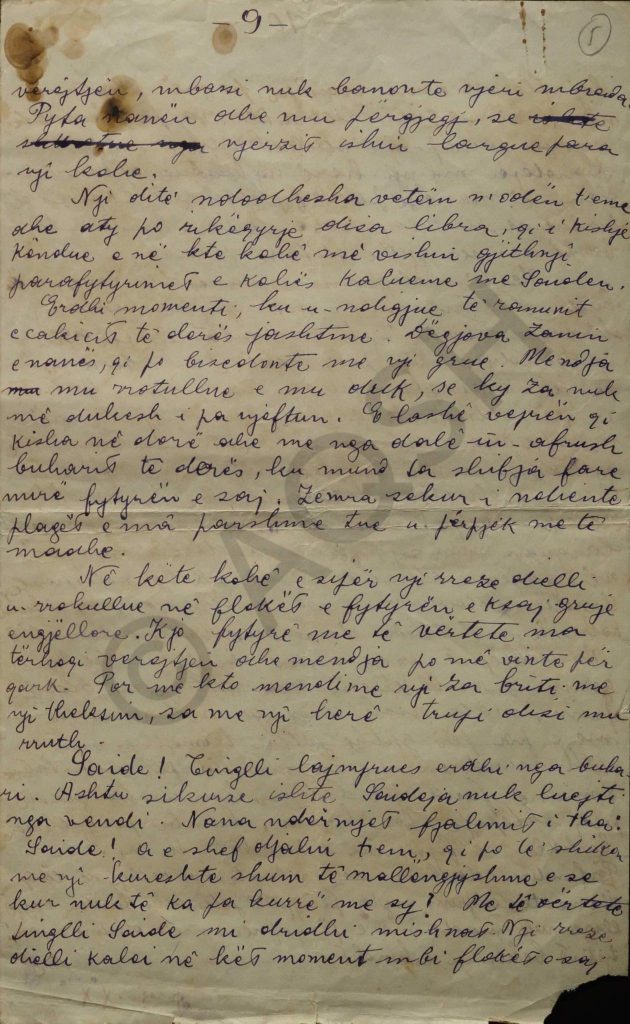 - 9 -
5
verejtjen, mbassi nuk banonte njeri mbrenda.
Pyta nanën dhe mu përgjegj, se ishte
nga njerzit ishin largue para
nji kohe.
Nji ditë ndodhesha vetëm n'odën t'eme
dhe aty po rikëqyrje disa libra, qi i kishje
këndue e në kte kohë më vishin gjithnji
parafytyrimet e kohës kalueme me Saiden.
Erdhi momenti, ku u-ndigjue të ranunit
e cakicit të derës jashtme. Dëgjova zanin
e nanës, qi po bisedonte me nji grue. Mendja
mu vrotullue e mu duk, se ky za nuk
më dukesh i pa njëftun. E lashë veprën qi
kisha në dorë dhe me nga dalë iu-afrush
buharit të derës, ku mund ta shifja fare
mirë fytyrën e saj. Zemra sekur i ndiente
plagët e mâ parshme tue u përpjek me të
madhe.
Në këte kohë e sifër nji rreze dielli
u-rrokullue në flokët e fytyrën e ksaj grueje
engjëllore. Kjo fytyrë me të vërtete ma
tërhoqi verejtjen dhe mendja po më vinte për
qark. Por me kto mendime nji za briti me
nji theksim, sa me nji herë trupi disi mu
rruth.
Saide! Tinglli lajmjrues erdhi nga buha-
ri. Ashtu sikurse ishte Saideja nuk luejti
nga vendi. Nana ndërnjet fjalimit i tha:
Saide! a e shef djalin t'em, qi po të shikon
me nji kureshte shum të mallëngjyshme e se
kur nuk të ka pa kurrë me sy? Me të vërtete
tinglli Saide mi dridhi mishnat. Nji rreze
dielli kaloi në kët moment mbi flokët e saj
© AQSH